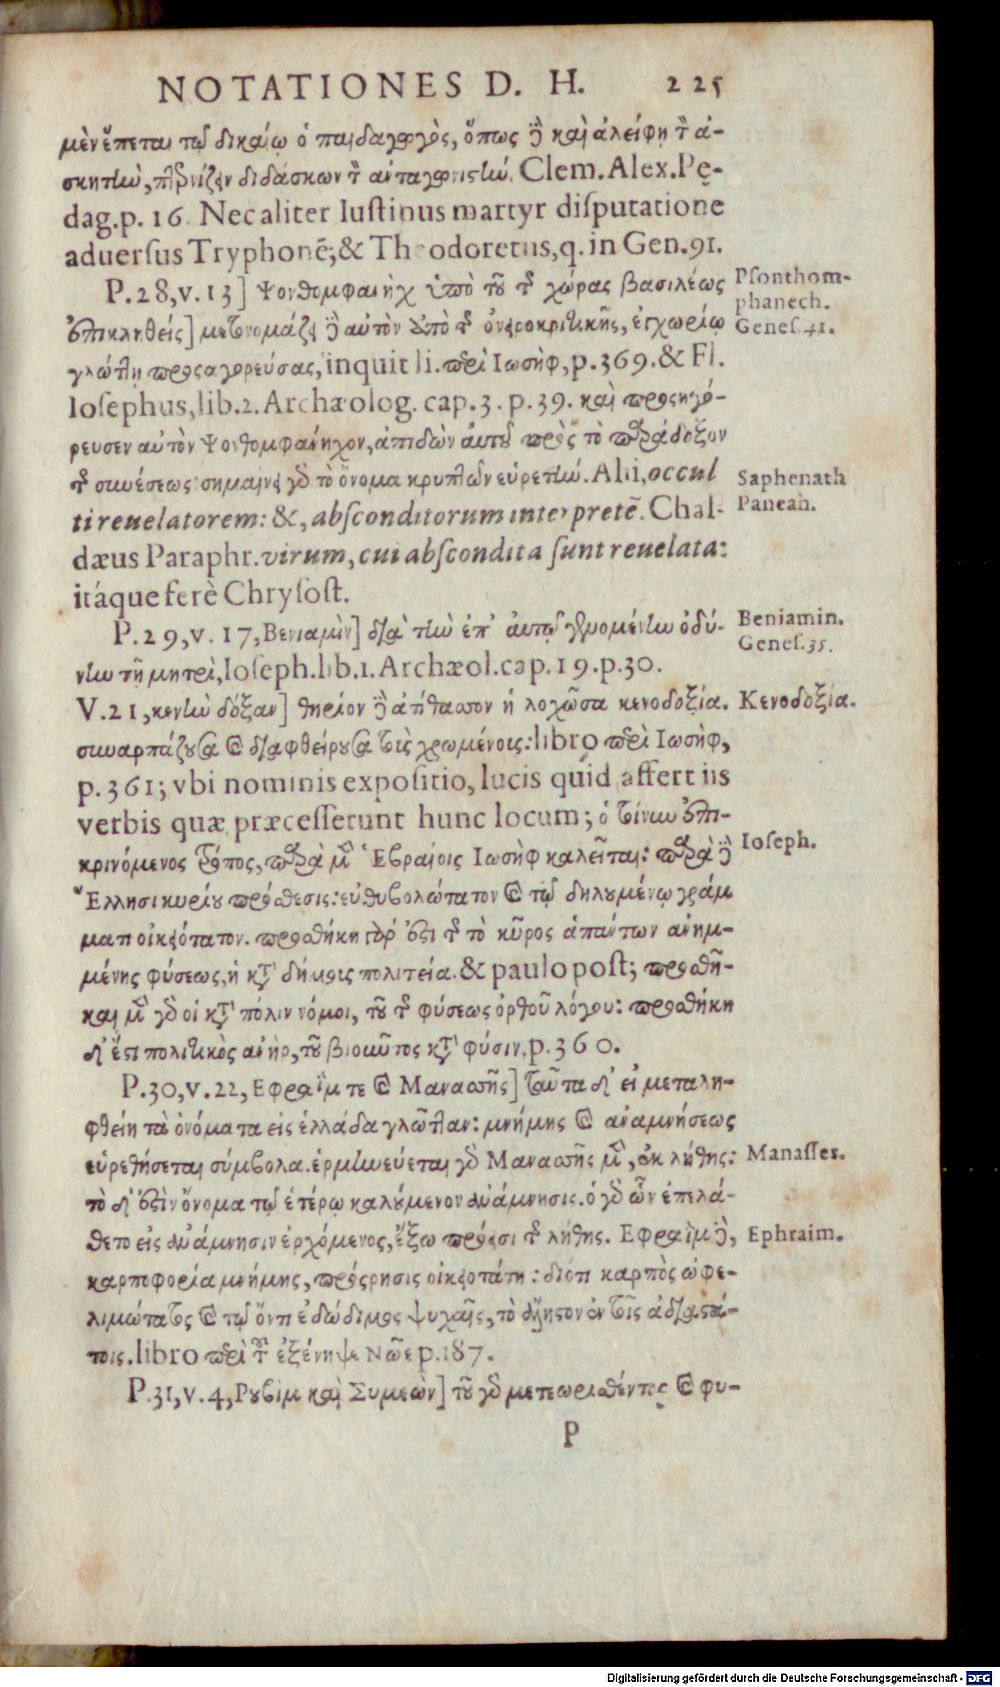 NOTATIONES D. H. 225
μὲν ἕπεται τῷ δικαίῳ ὁ παιδαγωγὸς, ὅπως δὲ καὶ ἀλείφῃ τὸν ἀ-
σκητὴν, πτερνίζειν διδάσκων τὸν ἀνταγωνιστὴν. Clem. Alex. Pę-
dag. p. 16. Nec aliter Iuſtinus martyr diſputatione
aduerſus Tryphonē; & Theodoretus, q. in Gen. 91.
P. 28, v. 13] Ψονθομφανὴχ ὑπὸ τοῦ τῆς χώρας βασιλέως
Pſonthom-
phanech.
Geneſ. 41.
ἐπικληθείς] μετονομάζει δὲ αὐτὸν ἀπὸ τῆς ὀνειροκριτικῆς, ἐγχωρίῳ
γλώττῃ προσαγορεύσας, inquit li. περὶ Ιωσὴφ, p. 369. & Fl.
Ioſephus, lib. 2. Archæolog. cap. 3. p. 39. καὶ προσηγό-
ρευσεν αὐτὸν Ψονθομφανήχον, ἀπιδὼν αὐτοῦ πρὸς τὸ παράδοξον
τῆς συνέσεως· σημαίνει γὰρ τὸ ὄνομα κρυπτῶν εὑρετὴν. Alii, occul
Saphenath
Paneah.
ti reuelatorem: &, abſconditorum interpretē. Chal-
dæus Paraphr. virum, cui abſcondita ſunt reuelata:
itáque ferè Chryſoſt.
P. 29, v. 17, Βενιαμὶν] διὰ τὴν ἐπ' αὐτῷ γενομένην ὀδύ-
Beniamin.
Geneſ. 35.
νην τῇ μητρὶ, Ioſeph. lib. 1. Archæol. cap. 19. p. 30.
V. 21, κενὴν δόξαν] θηρίον δὲ ἀτίθασσον ἡ λοχῶσα κενοδοξία.
Κενοδοξία.
συναρπάζουσα καὶ διαφθείρουσα τοὺς χρωμένοις: libro περὶ Ιωσὴφ,
p. 361; vbi nominis expoſitio, lucis quid affert iis
verbis quæ præceſſerunt hunc locum; ὁ τοίνυν ἐπι-
κρινόμενος τρόπος, παρὰ μὲν Ἑβραίοις Ιωσὴφ καλεῖται: παρὰ δὲ
Ioſeph.
Ἕλλησι κυρίου πρόσθεσις: εὐθυβολώτατον καὶ τῷ δηλουμένῳ πράγ
ματι οἰκειότατον. προσθήκη γάρ ἐστι τῆς τὸ κῦρος ἁπάντων ἀνημ-
μένης φύσεως, ἡ κατὰ δήμους πολιτεία. & paulo poſt; προσθῆ-
και μὲν γὰρ οἱ κατὰ πόλιν νόμοι, τοῦ τῆς φύσεως ὀρθοῦ λόγου: προσθήκη
δ' ἔστι πολιτικὸς ἀνὴρ, τοῦ βιοῦντος κατὰ φύσιν. p. 360.
P. 30, v. 22, Εφραῒμ τε καὶ Μανασσῆς] ταῦτα δ' εἰ μεταλη-
φθείη τὰ ὀνόματα εἰς ἑλλάδα γλῶτταν: μνήμης καὶ ἀναμνήσεως
εὑρεθήσεται σύμβολα. ἑρμηνεύεται γὰρ Μανασσῆς μὲν, ἐκ λήθης:
Manaſſes.
τὸ δ' ἐστὶν ὄνομα τῷ ἑτέρῳ καλούμενον ἀνάμνησις. ὁ γὰρ ὧν ἐπελά-
θετο εἰς ἀνάμνησιν ἐρχόμενος, ἔξω πρόεισι τῆς λήθης. Εφραῒμ δὲ,
Ephraim.
καρποφορία μνήμης, πρόσρησις οἰκειοτάτη: διότι καρπὸς ὠφε-
λιμώτατος καὶ τῷ ὄντι ἐδώδιμος ψυχαῖς, τὸ ἄληστον ἐν ταῖς ἀδιαστά-
τοις. libro περὶ τοῦ ἐξένηψε Νῶε p. 187.
P. 31, v. 4, Ρουβὶμ καὶ Συμεὼν] τοῦ γὰρ μετεωρισθέντος καὶ φυ-
P
Digitalisierung gefördert durch die Deutsche Forschungsgemeinschaft - DFG